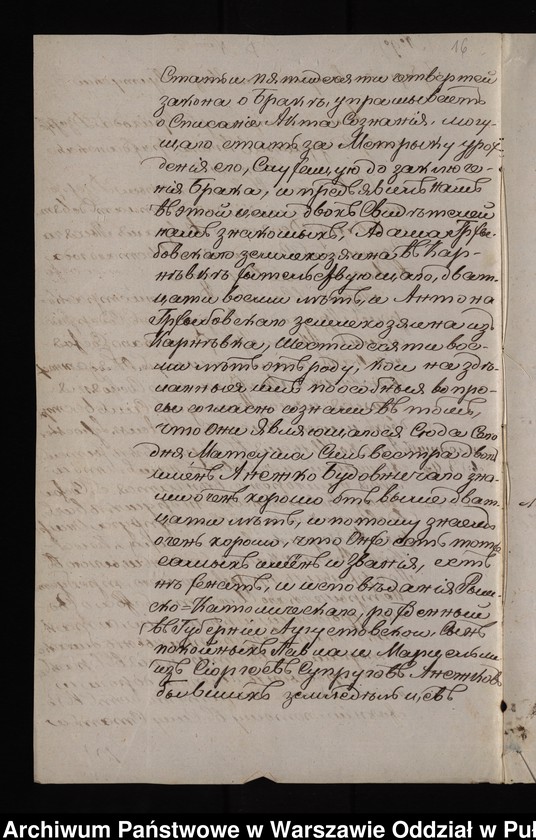 16
Статьи пятидесяти четвертой
закона о Бракѣ, упрашываетъ
о Списаніе Акта Сознанія, могу-
щаго стать за Метрыку урож-
денія его, Служащую до заключе-
нія Брака, и предъявилъ намъ
въ этой цели двохъ Свидѣтелей
намъ знакомыхъ, Адама Грży-
бовскаго землехозяина въ Кар-
нѣвкѣ жительствующаго, дват-
цати восми лѣтъ, и Антона
Гржыбовскаго землехозяина изъ
Карнѣвка, шестидесяти вось-
ми лѣтъ отъ роду, кои на здѣ-
ланные имъ пособные вопро-
сы согласно сознали въ томъ,
что они являющагося Сюда Сего
дня Матеуша Сильвестра двохъ
имёнъ Анежко Будовничаго зна-
ли очень хорошо отъ выше дват-
цати лѣтъ, и потому знаемъ
очень хорошо, что Онъ есть тотъ
самыхъ имёнъ и Званія, есть
нѣ женатъ, и исповѣданія Рым-
ско=Католическаго, рожденный
въ Губерніи Аугустовской Сынъ
покойныхъ Павла и Марцельли
изъ Сіоргоевъ Супруговъ Анежковъ
бывшихъ земледѣльцевъ
Archiwum Państwowe w Warszawie Oddział w Puł